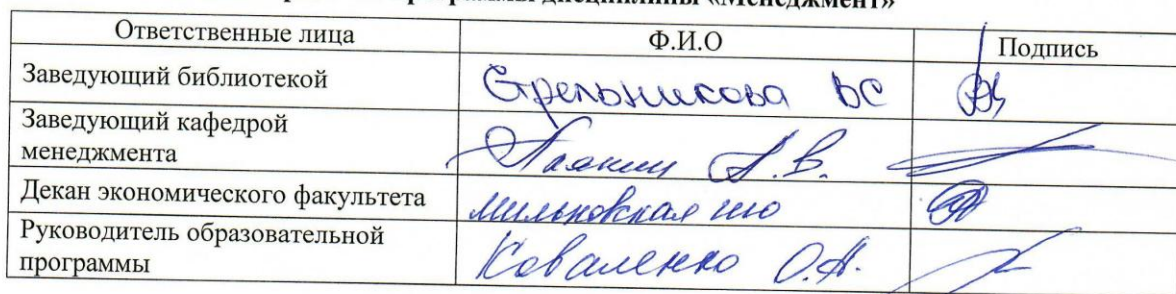 программы дисциплины «Менеджмент»
Ответственные лица Ф.И.О Подпись
Заведующий библиотекой Стрельникова ВС
Заведующий кафедрой
менеджмента А.В.
Декан экономического факультета
Руководитель образовательной
программы Коваленко О.А.